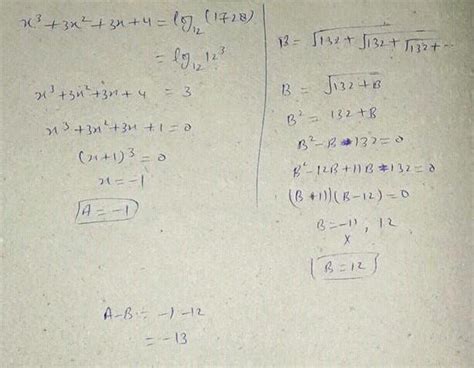 x³ + 3x² + 3x + 4 = log₁₂(1728)
= log₁₂ 12³
x³ + 3x² + 3x + 4 = 3
x³ + 3x² + 3x + 1 = 0
(x+1)³ = 0
x = -1
A = -1
B = √(132 + √(132 + √(132 + ...
B = √(132 + B)
B² = 132 + B
B² - B - 132 = 0
B² - 12B + 11B - 132 = 0
(B + 11)(B - 12) = 0
B = -11, 12
x
B = 12
A - B = -1 - 12
= -13